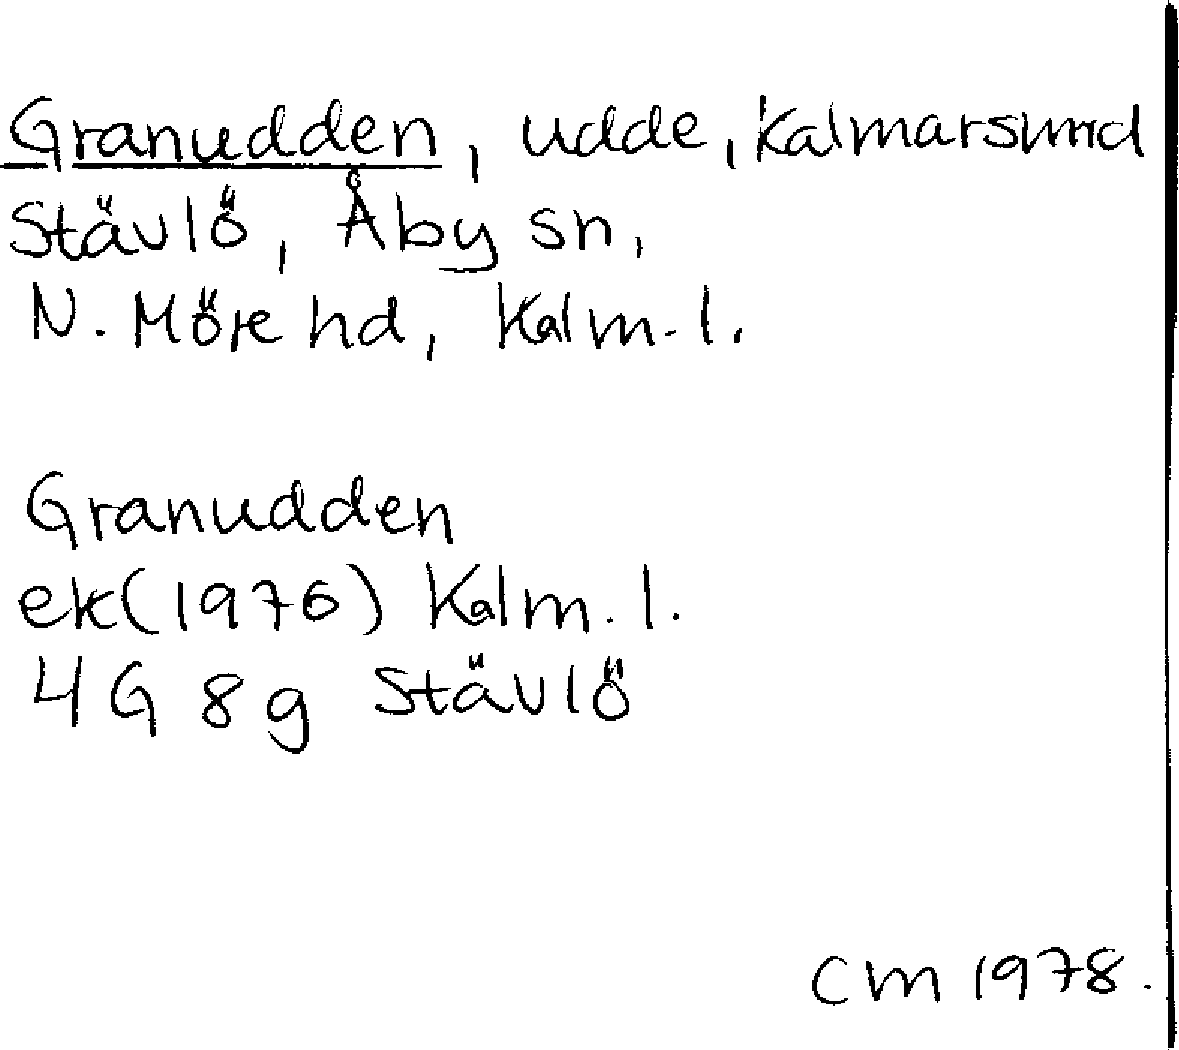 Granudden, udde, Kalmarsund
Stävlö, Åby sn,
N. Möre hd, Kalm. l.
Granudden
ek(1976) Kalm. l.
4G 8g Stävlö
CM 1978.